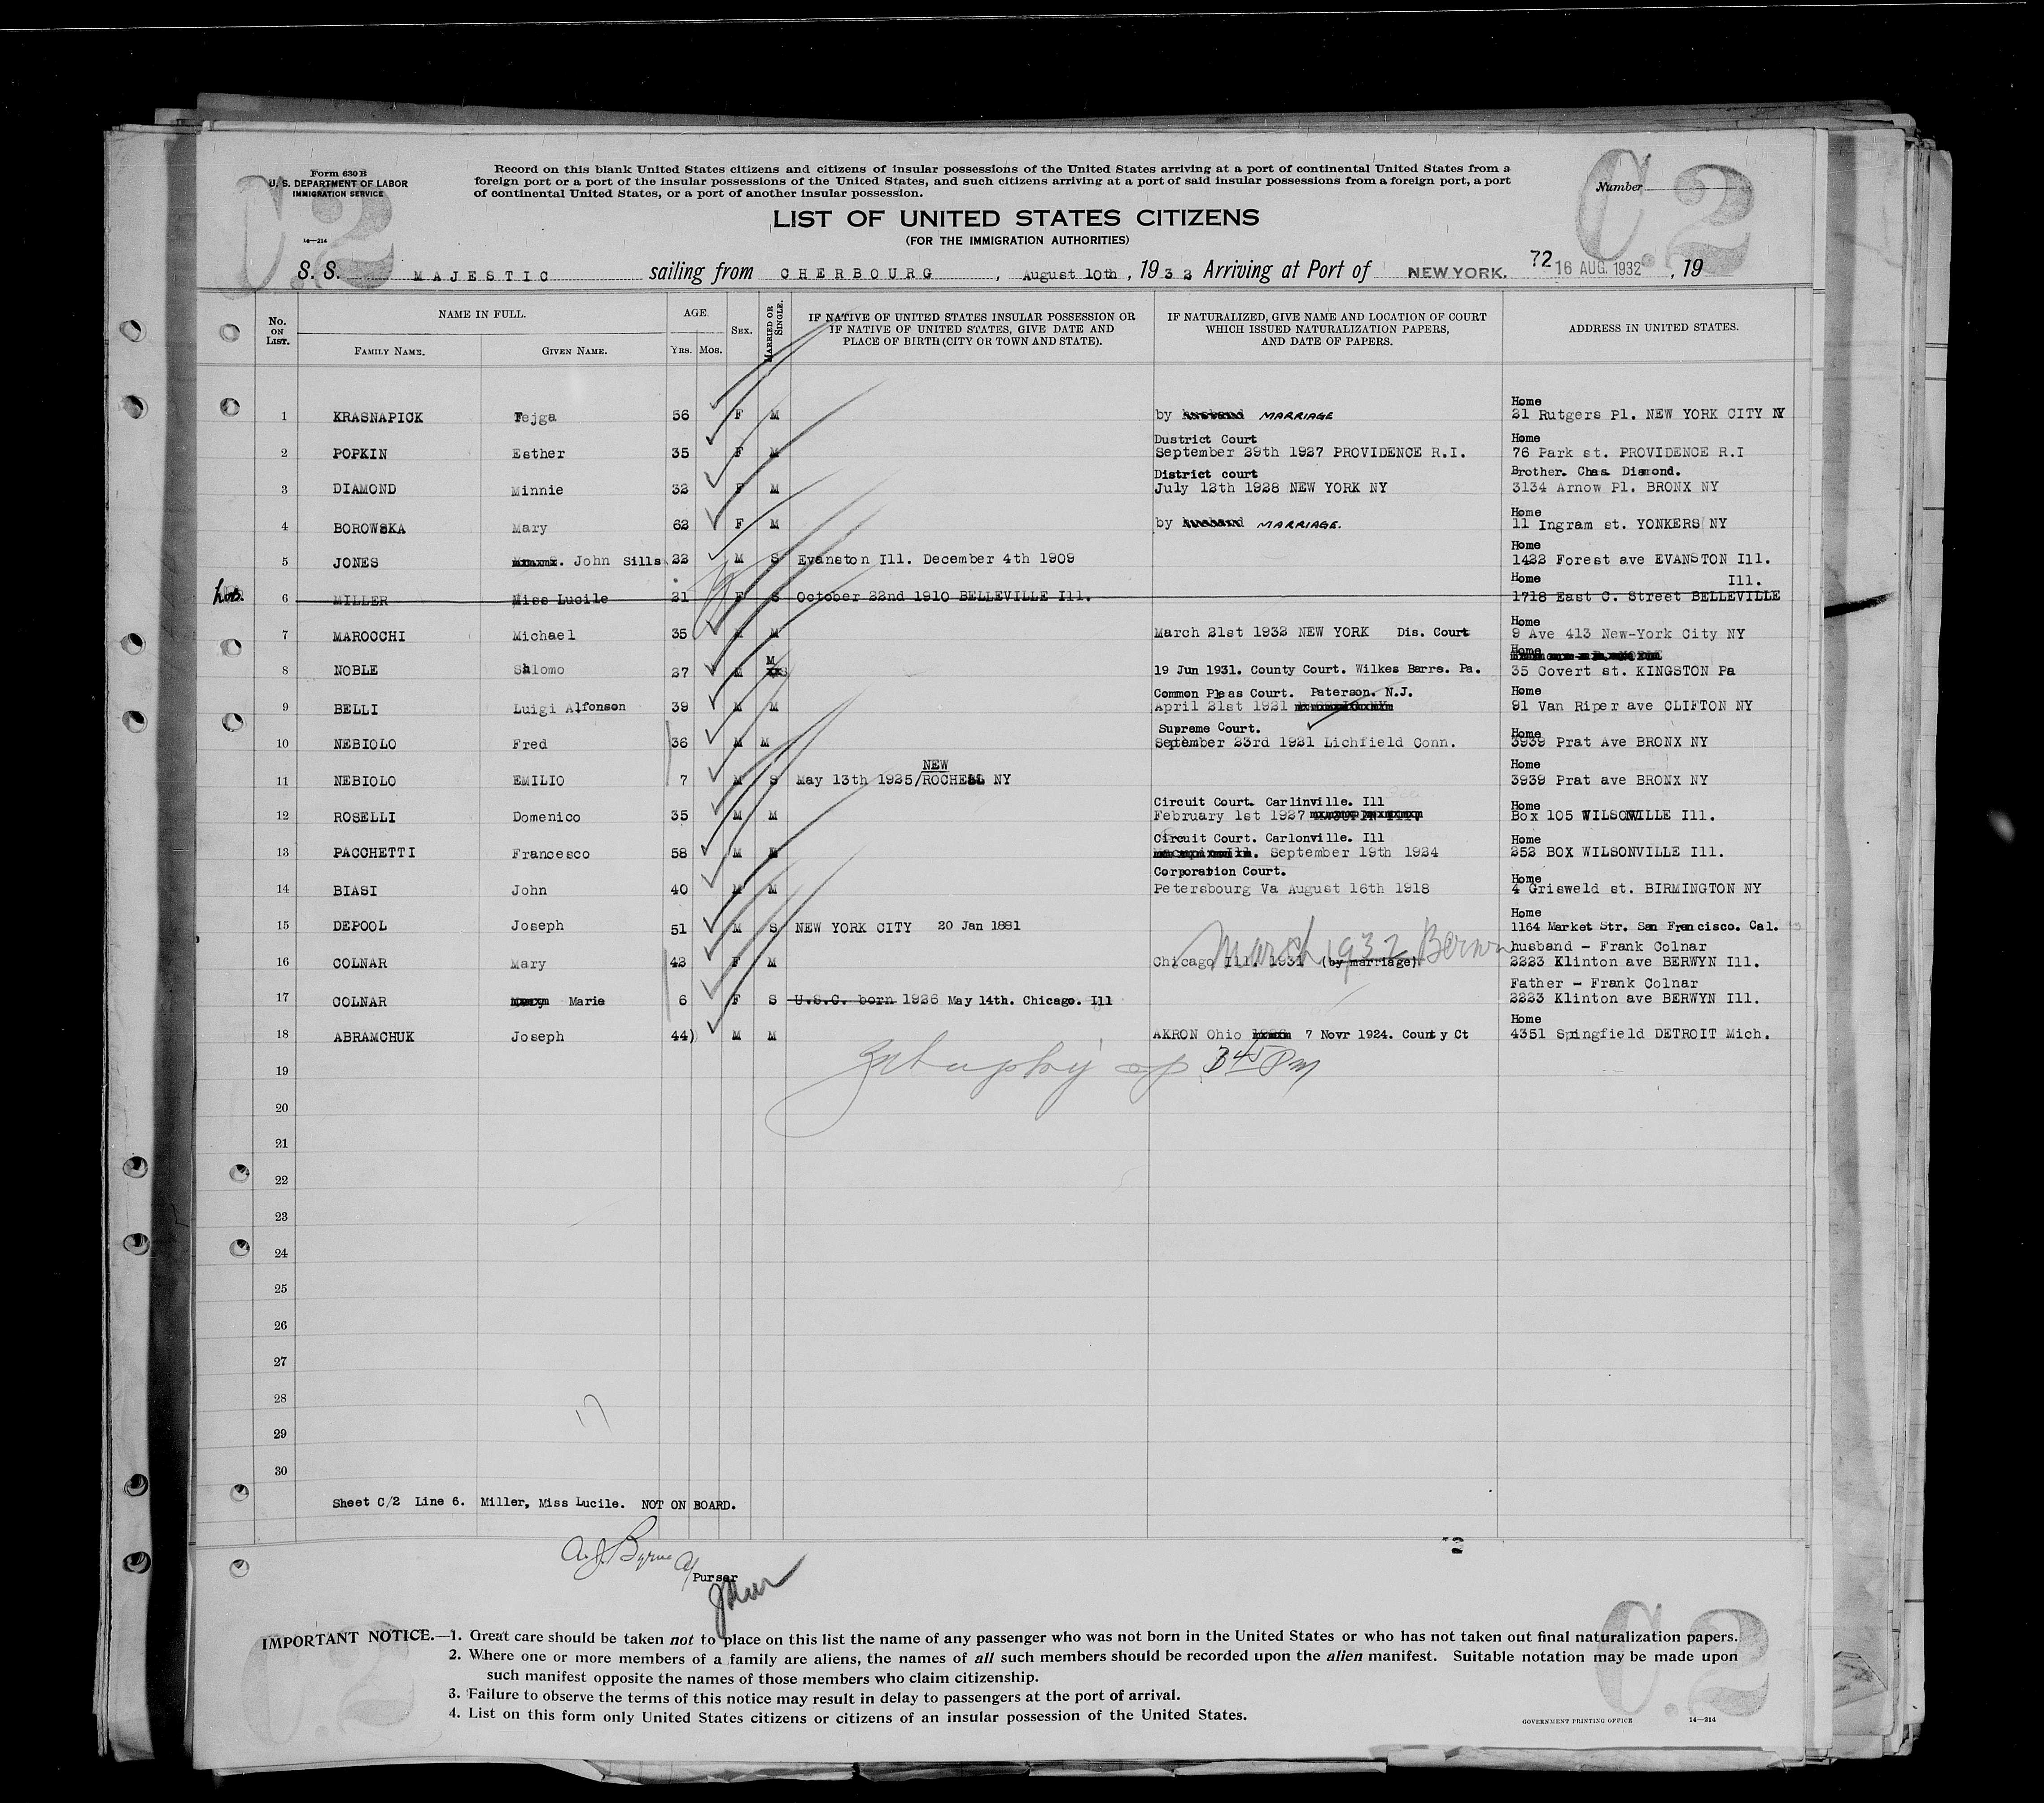 Form 630 B
U. S. DEPARTMENT OF LABOR
IMMIGRATION SERVICE
14—214
C2
Record on this blank United States citizens and citizens of insular possessions of the United States arriving at a port of continental United States from a
foreign port or a port of the insular possessions of the United States, and such citizens arriving at a port of said insular possessions from a foreign port, a port
of continental United States, or a port of another insular possession.
Number
C.2
LIST OF UNITED STATES CITIZENS
(FOR THE IMMIGRATION AUTHORITIES)
S. S. MAJESTIC sailing from CHERBOURG, August 10th, 1932 Arriving at Port of NEW YORK. 72 16 AUG. 1932, 19
No. ON LIST. NAME IN FULL. AGE. SEX. MARRIED OR SINGLE. IF NATIVE OF UNITED STATES INSULAR POSSESSION OR IF NATIVE OF UNITED STATES, GIVE DATE AND PLACE OF BIRTH (CITY OR TOWN AND STATE). IF NATURALIZED, GIVE NAME AND LOCATION OF COURT WHICH ISSUED NATURALIZATION PAPERS, AND DATE OF PAPERS. ADDRESS IN UNITED STATES.
FAMILY NAME. GIVEN NAME. YRS. MOS.
Home
1 KRASNAPICK Fejga 56 F M by husband MARRIAGE 21 Rutgers Pl. NEW YORK CITY NY
Dustrict Court Home
2 POPKIN Esther 35 F M September 29th 1927 PROVIDENCE R.I. 76 Park st. PROVIDENCE R.I
District court Brother. Chas. Diamond.
3 DIAMOND Minnie 32 F M July 12th 1928 NEW YORK NY 3134 Arnow Pl. BRONX NY
Home
4 BOROWSKA Mary 62 F M by husband MARRIAGE. 11 Ingram st. YONKERS NY
Home
5 JONES John Sills 22 M S Evanston Ill. December 4th 1909 1422 Forest ave EVANSTON Ill.
Home Ill.
6 MILLER Miss Lucile 21 F S October 22nd 1910 BELLEVILLE Ill. 1718 East C. Street BELLEVILLE
Home
7 MAROCCHI Michael 35 M M March 21st 1932 NEW YORK Dis. Court 9 Ave 413 New-York City NY
M Home
8 NOBLE Shlomo 27 M S 19 Jun 1931. County Court. Wilkes Barre. Pa. 35 Covert st. KINGSTON Pa
Common Pleas Court. Paterson. N.J. Home
9 BELLI Luigi Alfonson 39 M M April 21st 1921 91 Van Riper ave CLIFTON NY
Supreme Court. Home
10 NEBIOLO Fred 36 M M September 23rd 1921 Lichfield Conn. 3939 Prat Ave BRONX NY
NEW Home
11 NEBIOLO EMILIO 7 M S May 13th 1925/ROCHELL NY 3939 Prat ave BRONX NY
Circuit Court. Carlinville. Ill Home
12 ROSELLI Domenico 35 M M February 1st 1927 Box 105 WILSONVILLE Ill.
Circuit Court. Carlonville. Ill Home
13 PACCHETTI Francesco 58 M M September 19th 1924 252 BOX WILSONVILLE Ill.
Corporation Court. Home
14 BIASI John 40 M M Petersbourg Va August 16th 1918 4 Grisweld st. BIRMINGTON NY
Home
15 DEPOOL Joseph 51 M S NEW YORK CITY 20 Jan 1881 1164 Market Str. San Francisco. Cal.
March 1932 Berwin husband - Frank Colnar
16 COLNAR Mary 42 F M Chicago Ill. 1931 (by marriage). 2223 Klinton ave BERWYN Ill.
Father - Frank Colnar
17 COLNAR Marie 6 F S U.S.C. born 1926 May 14th. Chicago. Ill 2223 Klinton ave BERWYN Ill.
Home
18 ABRAMCHUK Joseph 44) M M AKRON Ohio 7 Novr 1924. County Ct 4351 Spingfield DETROIT Mich.
19 345 PM
20
21
22
23
24
25
26
27
28
17
29
30
Sheet C/2 Line 6. Miller, Miss Lucile. NOT ON BOARD.
A. J. Byrne
Purser
IMPORTANT NOTICE.—1. Great care should be taken not to place on this list the name of any passenger who was not born in the United States or who has not taken out final naturalization papers.
2. Where one or more members of a family are aliens, the names of all such members should be recorded upon the alien manifest. Suitable notation may be made upon
such manifest opposite the names of those members who claim citizenship.
3. Failure to observe the terms of this notice may result in delay to passengers at the port of arrival.
4. List on this form only United States citizens or citizens of an insular possession of the United States.
GOVERNMENT PRINTING OFFICE 14—214
C.2
C.2